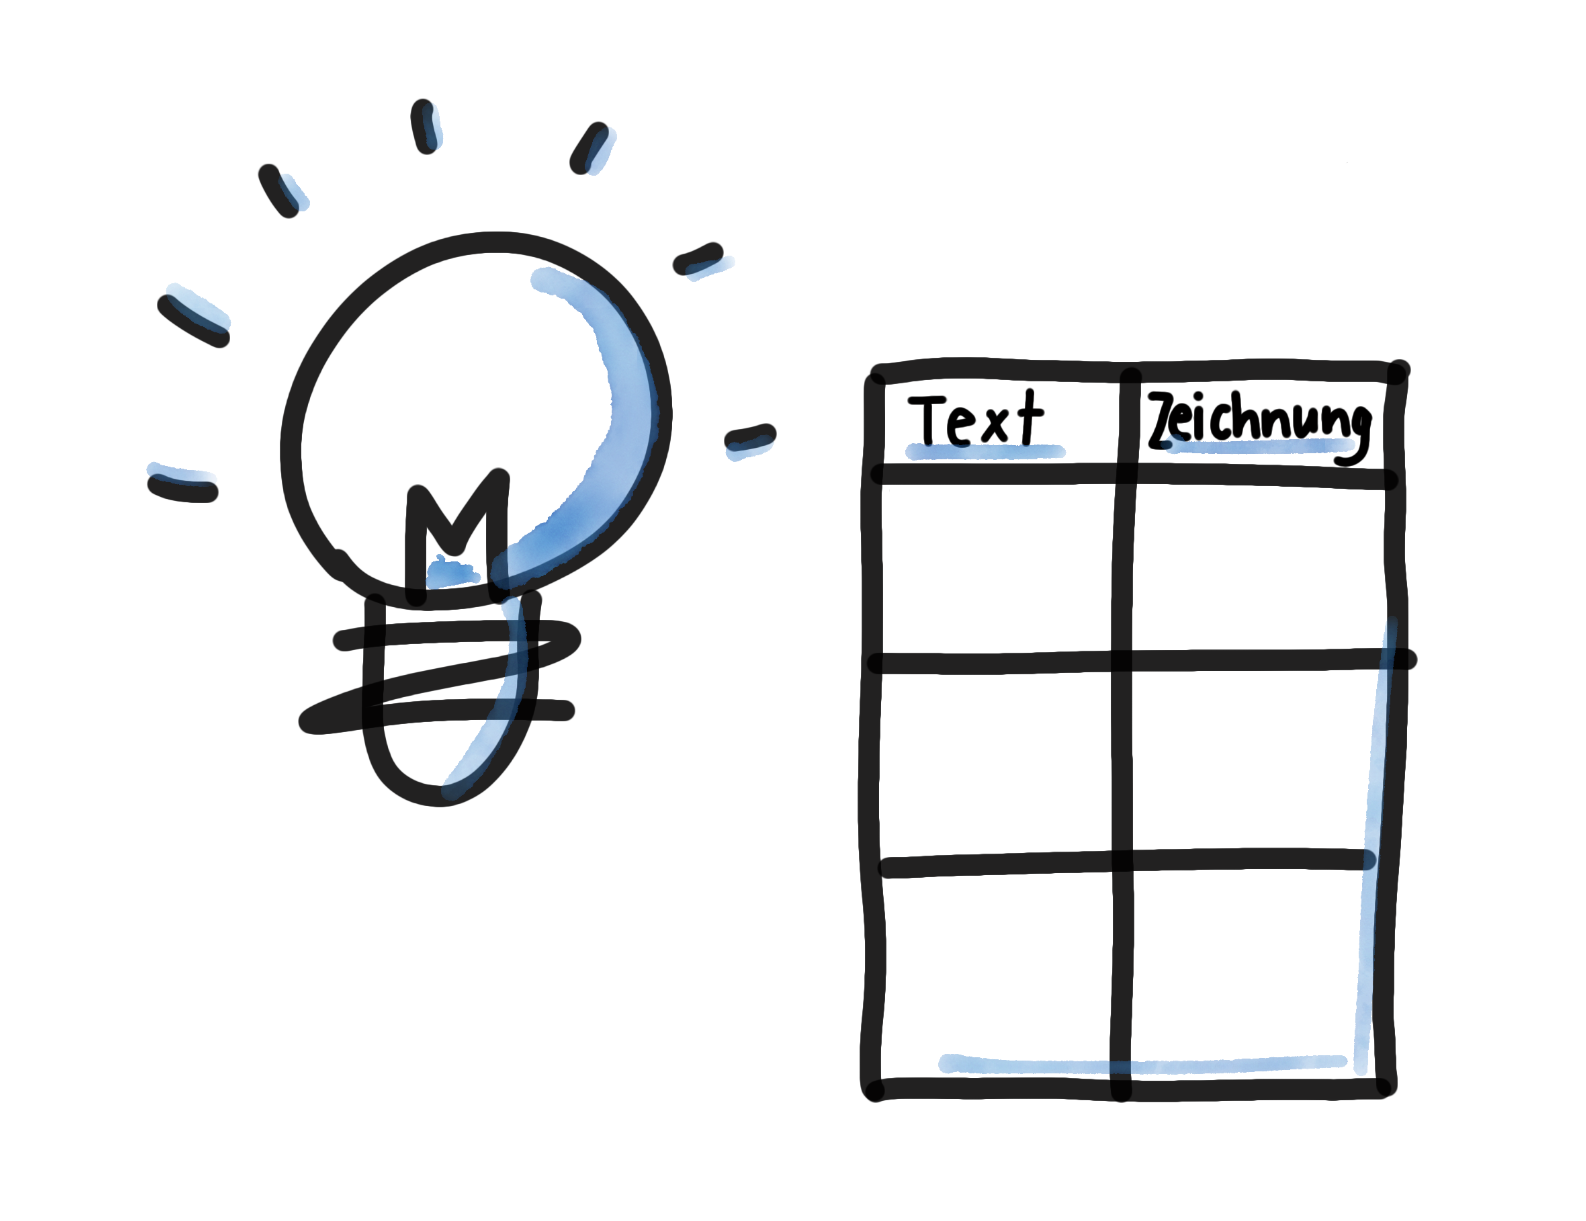 Text
Zeichnung